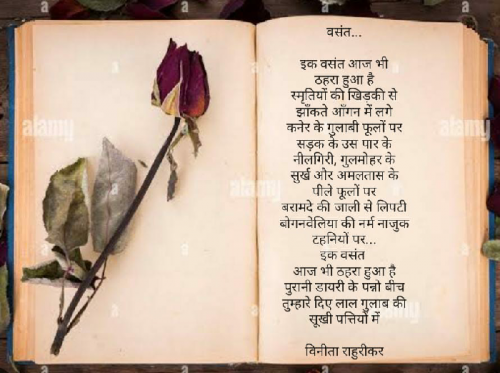 वसंत...
इक वसंत आज भी
ठहरा हुआ है
स्मृतियों की खिड़की से
झाँकते आँगन में लगे
कनेर के गुलाबी फूलों पर
सड़क के उस पार के
नीलगिरी, गुलमोहर के
सुर्ख और अमलतास के
पीले फूलों पर
बरामदे की जाली से लिपटी
बोगनवेलिया की नर्म नाजुक
टहनियों पर...
इक वसंत
आज भी ठहरा हुआ है
पुरानी डायरी के पन्नो बीच
तुम्हारे दिए लाल गुलाब की
सूखी पत्तियों में
विनीता राहुरीकर
alamy
alamy
alamy